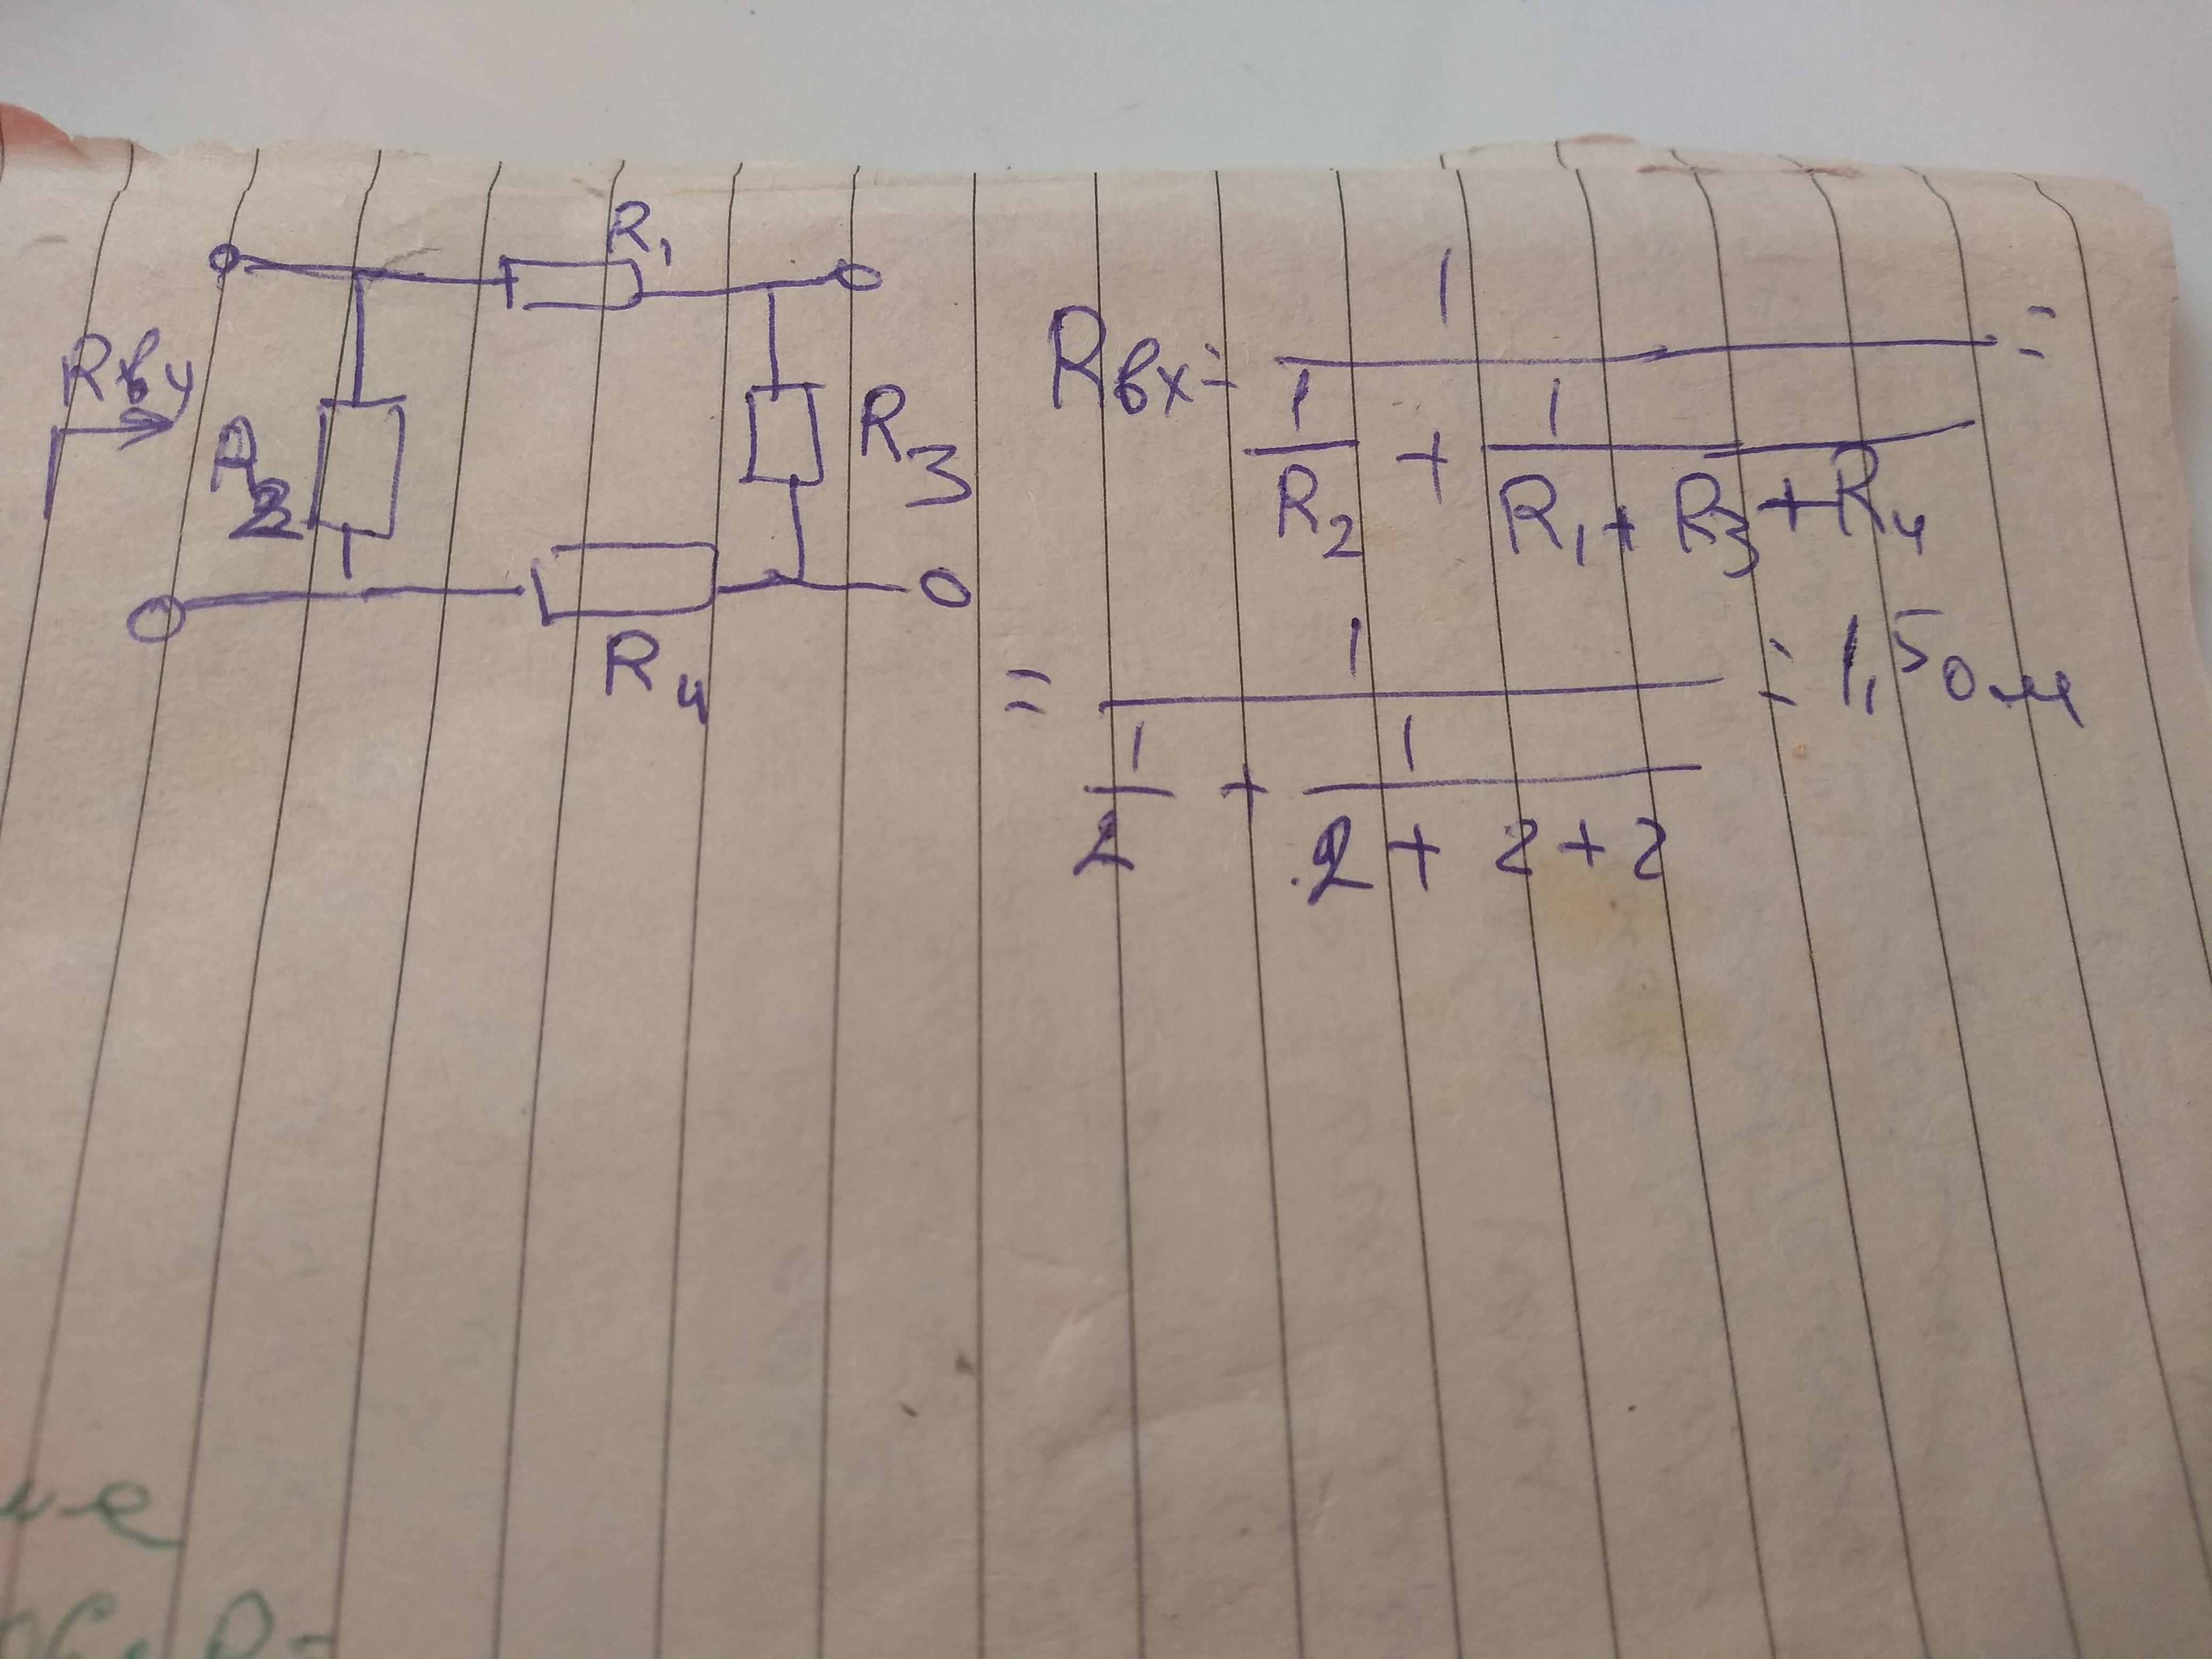 R₁
Rвх
R₂
R₃
R₄
Rвх = 1 / (1/R₂ + 1/(R₁ + R₃ + R₄)) =
= 1 / (1/2 + 1/(2 + 2 + 2)) = 1,5 ом